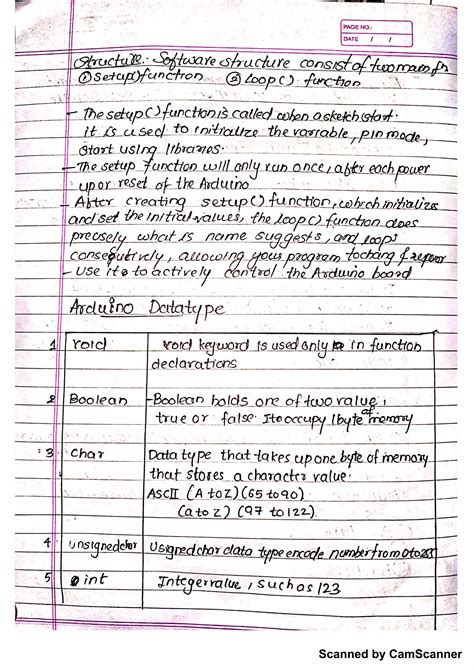 PAGE NO.:
DATE / /
Structure:- Software structure consist of two main fn
① setup() function ② Loop() function
- The setup() function is called when a sketch start.
it is used to initialize the variable, pin mode,
start using libraries.
- The setup function will only run once, after each power
up or reset of the Arduino
- After creating setup() function, which initializes
and set the initial values, the loop() function does
precsely what is name suggests, and loops
consequtively, allowing your program to chang &
- Use it to actively control the Arduino board
Arduino Datatype
1 void void keyword is used only in function
declarations
2 Boolean -Boolean holds one of two value,
true or false. Ito occupy 1 byte of memory
3 Char Data type that takes up one byte of memory
that stores a character value.
ASCII (A to Z) (65 to 90)
(a to z) (97 to 122).
4 unsigned char Usigned char data type encode number from 0 to 255
5 int Integer value, such as 123
Scanned by CamScanner